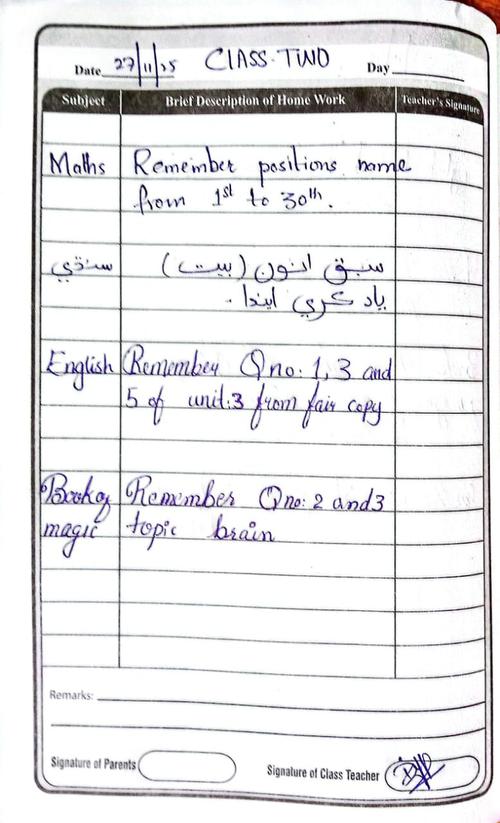 Date 27/11/25 CLASS TWO Day
Subject Brief Description of Home Work Teacher's Signature
Maths Remember positions name
from 1st to 30th.
سنڌي سبق اٺون (بيت)
ياد ڪري ايندا .
English Remember Q no: 1, 3 and
5 of unit:3 from fair copy
Book of Remember Q no: 2 and 3
magic topic brain
Remarks:
Signature of Parents Signature of Class Teacher